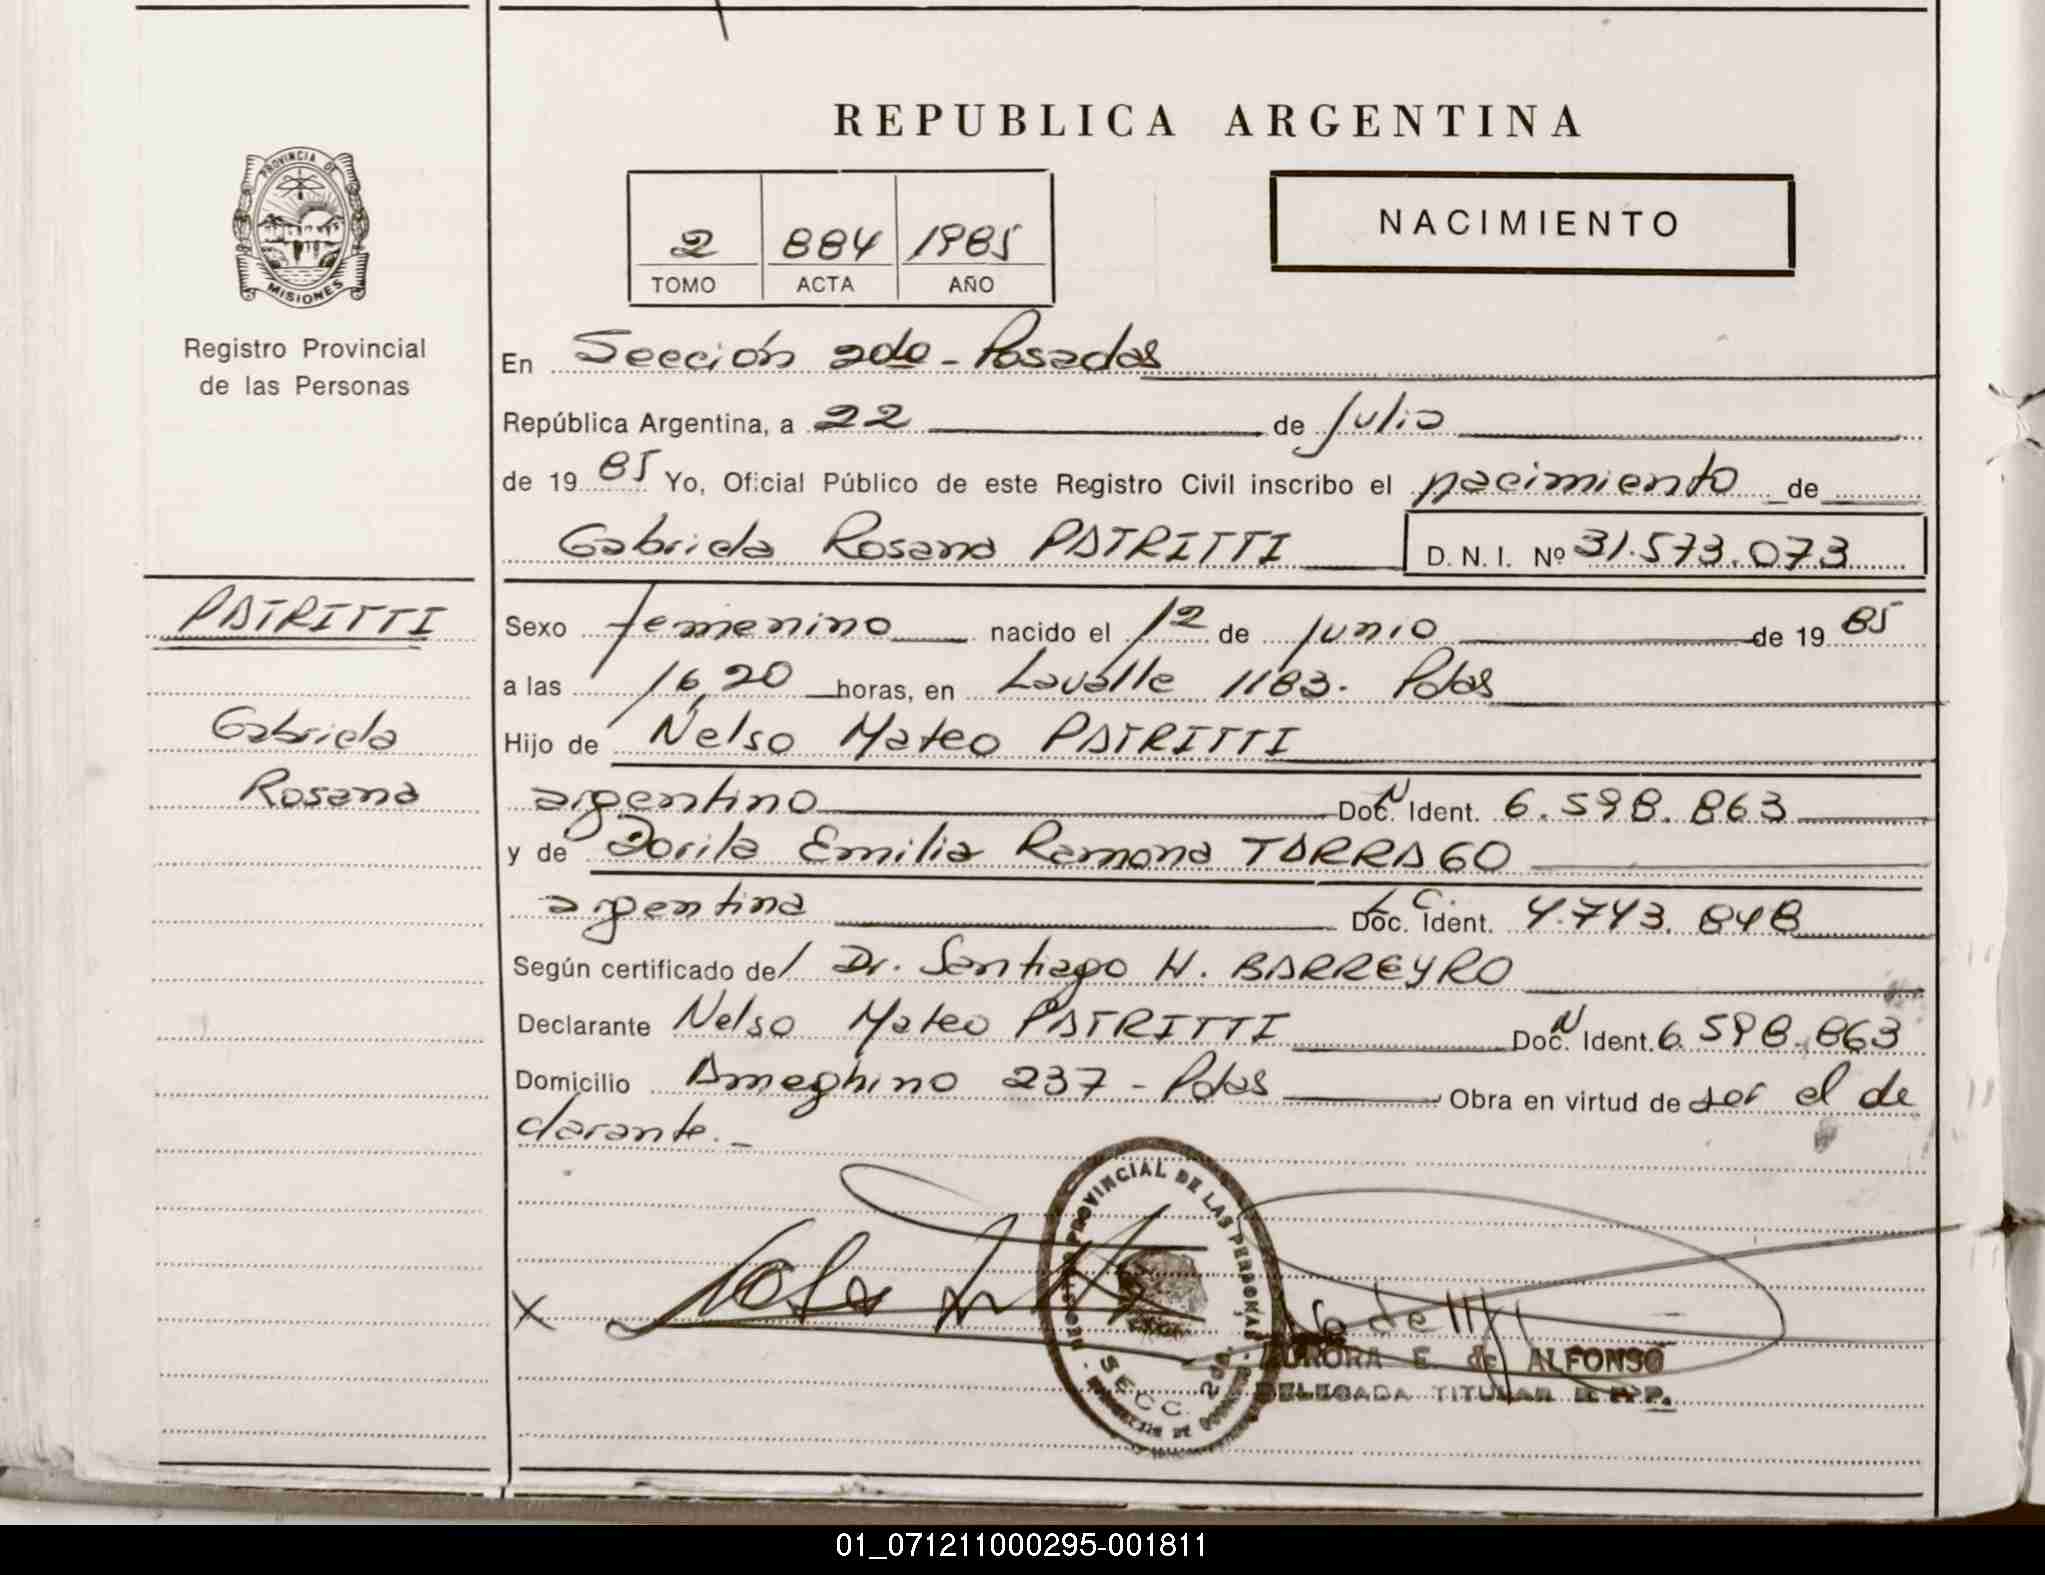 REPUBLICA ARGENTINA
PROVINCIA DE
MISIONES
2 884 1985
TOMO ACTA AÑO
NACIMIENTO
Registro Provincial
de las Personas
En Sección 2da - Posadas
República Argentina, a 22 de Julio
de 19 85 Yo, Oficial Público de este Registro Civil inscribo el nacimiento de
Gabriela Rosana PATRITTI D. N. I. Nº 31.573.073
PATRITTI
Gabriela
Rosana
Sexo femenino nacido el 12 de Junio de 19 85
a las 16,20 horas, en Lavalle 1183. Pdas
Hijo de Nelso Mateo PATRITTI
argentino Doc. N Ident. 6.598.863
y de Dorila Emilia Ramona TARRAGO
argentina L C. Doc. Ident. 4.743.848
Según certificado de/ Dr. Santiago H. BARREYRO
Declarante Nelso Mateo PATRITTI Doc. N Ident. 6.598.863
Domicilio Ameghino 237 - Pdas Obra en virtud de ser el de
clarante.-
PROVINCIAL DE LAS PERSONAS
SECC. 2da.
X
AURORA E. de ALFONSO
DELEGADA TITULAR R.P.P.
01_071211000295-001811